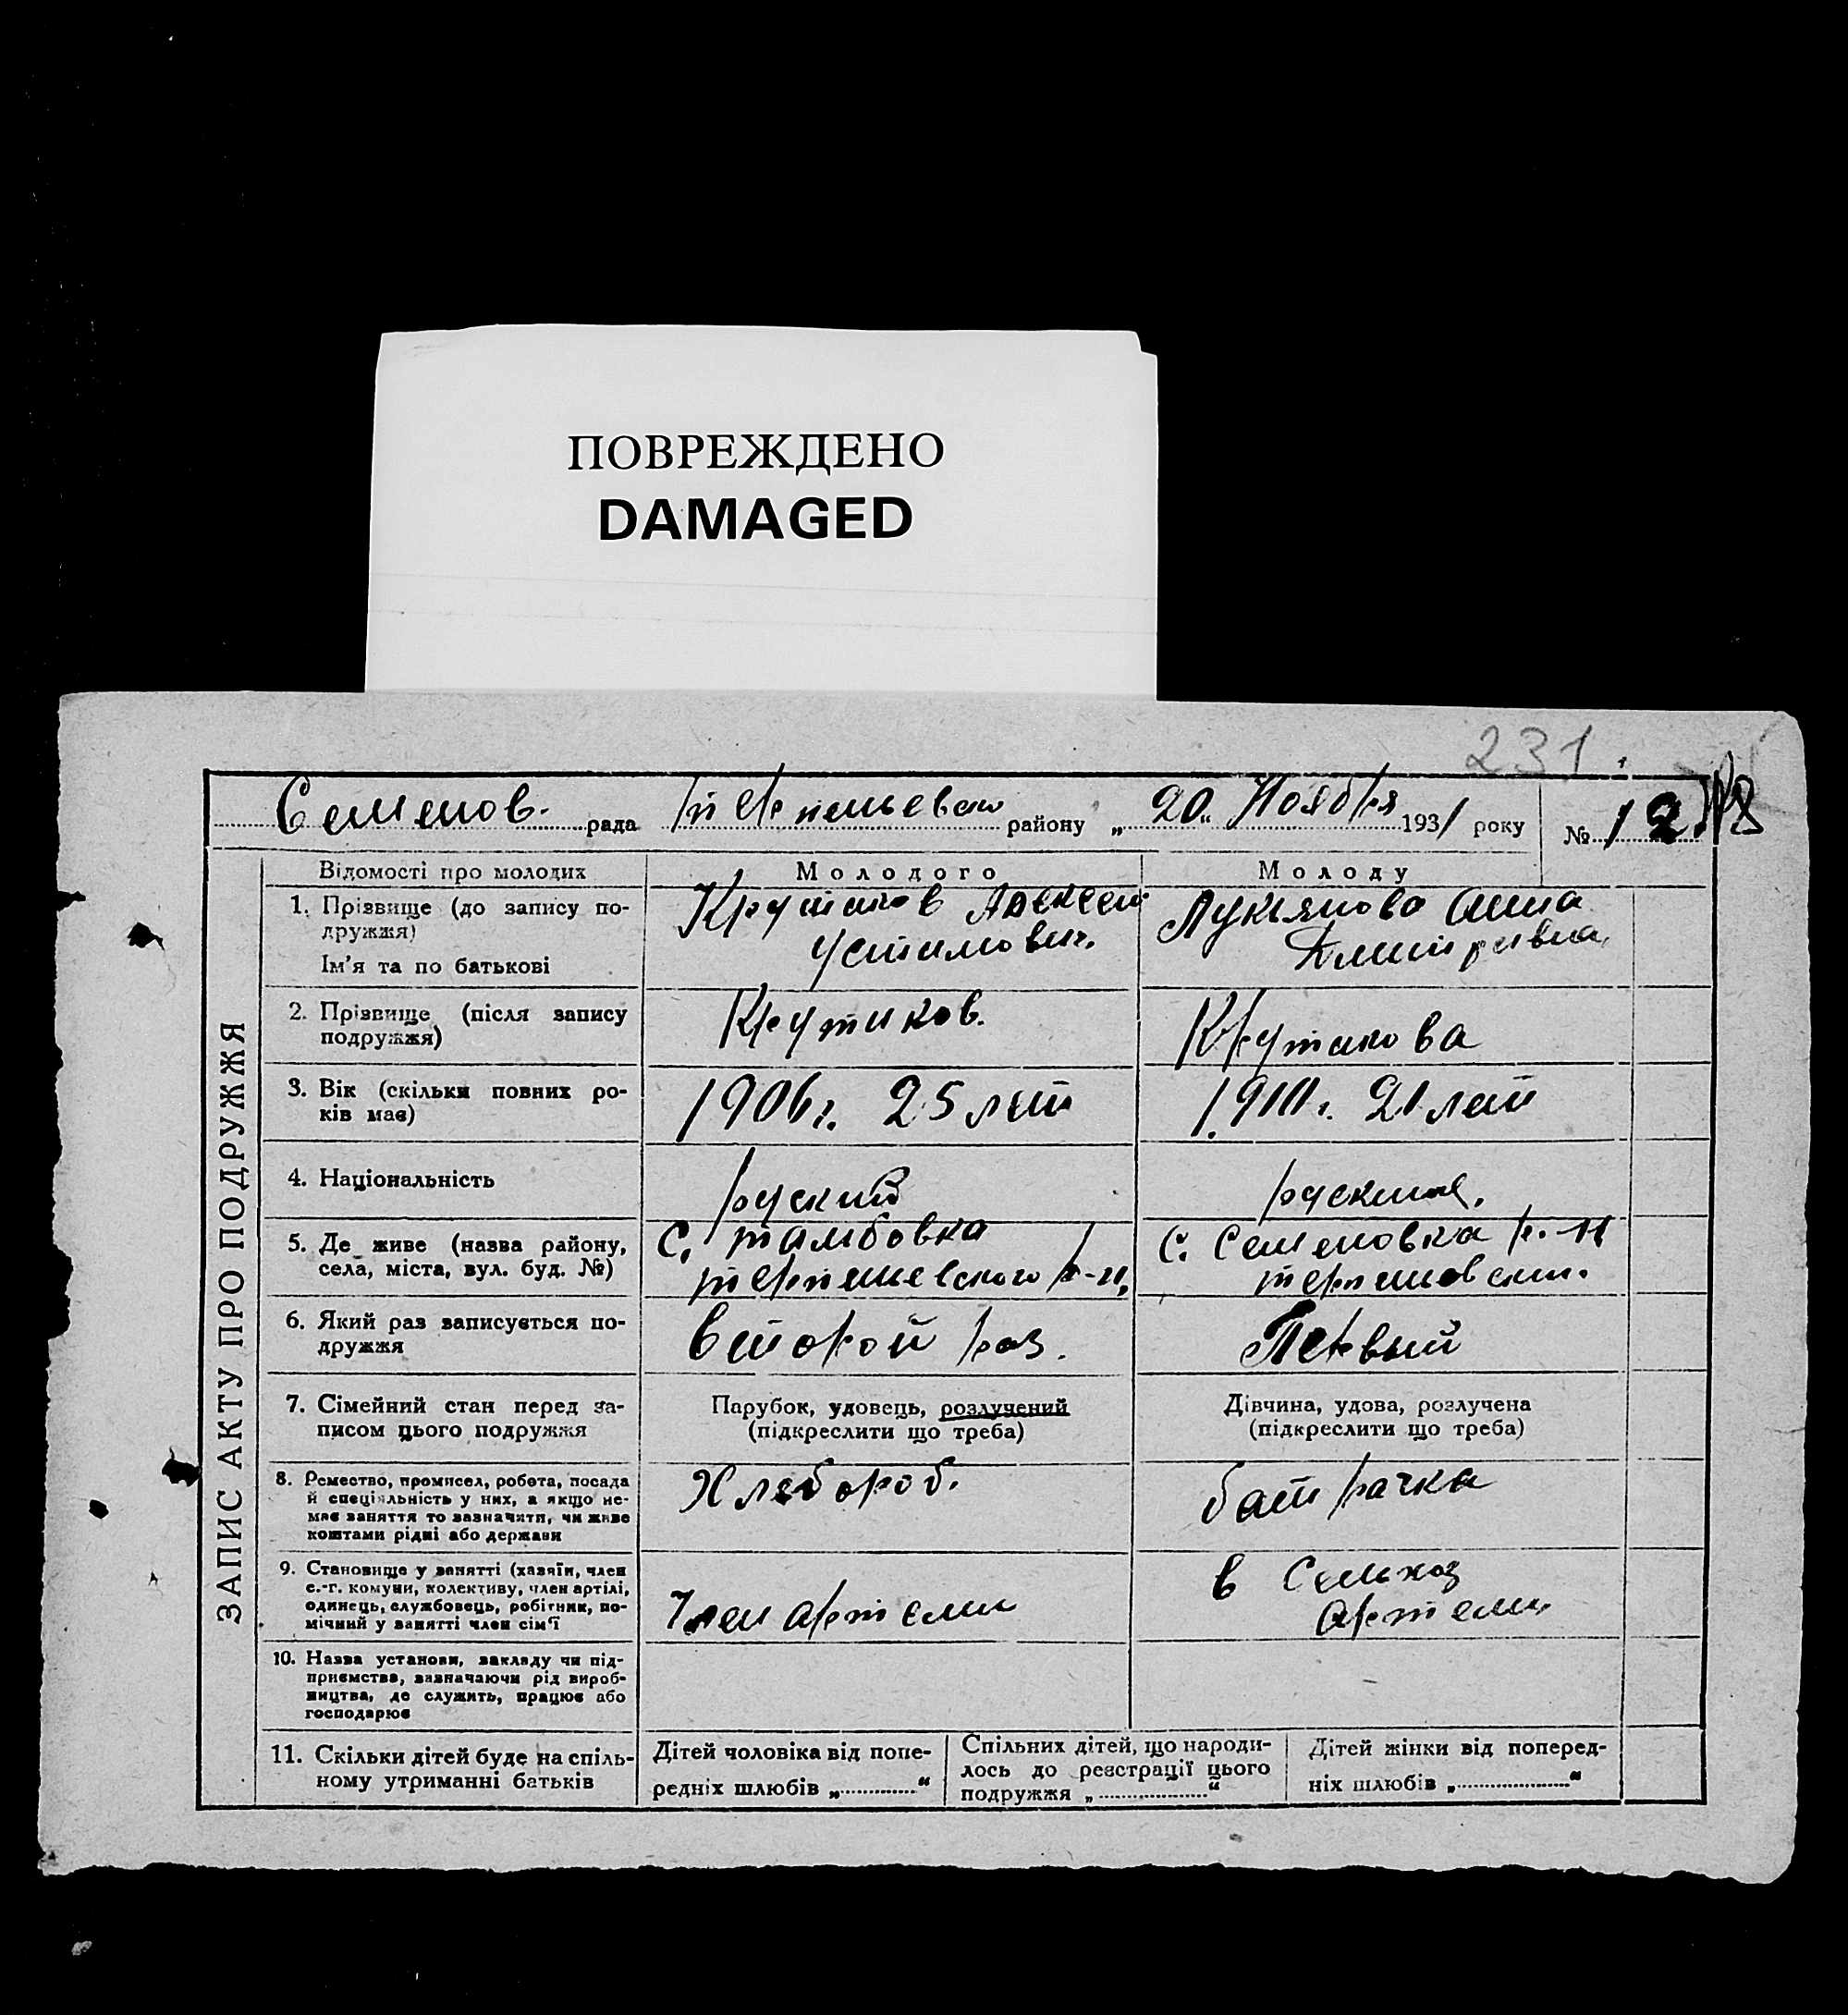 ПОВРЕЖДЕНО
DAMAGED
231.
Семенов. рада терпеньевско району „20“ Ноября 1931 року № 12
ЗАПИС АКТУ ПРО ПОДРУЖЖЯ
Відомості про молодих Молодого Молоду
1. Прізвище (до запису по-
дружжя)
Ім'я та по батькові
Крутиков Алексей
Устимович.
Лукьянова Анна
Дмитривна
2. Прізвище (після запису
подружжя)
Крутиков.
Крутикова
3. Вік (скільки повних ро-
ків має)
1906 г. 25 лет
1910 г. 21 лет
4. Національність
руский
руская.
5. Де живе (назва району,
села, міста, вул. буд. №)
С. тамбовка
терпеневского р-н,
С. Семеновка р-н
терпеновским.
6. Який раз записується по-
дружжя
второй раз.
Первый
7. Сімейний стан перед за-
писом цього подружжя
Парубок, удовець, розлучений
(підкреслити що треба)
Дівчина, удова, розлучена
(підкреслити що треба)
8. Ремество, промисел, робота, посада
й спеціяльність у них, а якщо не-
має заняття то зазначити, чи живе
коштами рідні або держави
Хлебороб.
батрачка
9. Становище у занятті (хазяїн, член
с.-г. комуни, колективу, член артілі,
одинець, службовець, робітник, по-
мічний у занятті член сім'ї
Член артели
в Сельхоз
артели
10. Назва установи, закладу чи під-
приємства, зазначаючи рід вироб-
ництва, де служить, працює або
господарює
11. Скільки дітей буде на спіль-
ному утриманні батьків
Дітей чоловіка від попе-
редніх шлюбів „..............“
Спільних дітей, що народи-
лось до реєстрації цього
подружжя „..............“
Дітей жінки від поперед-
ніх шлюбів „..............“